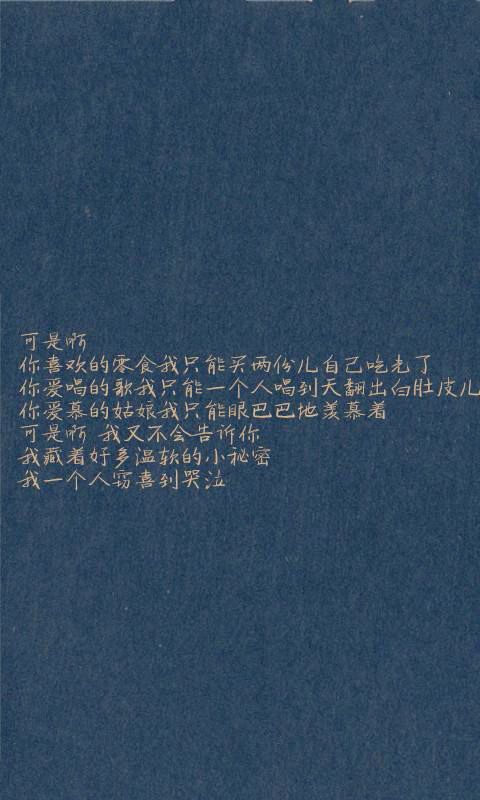 可是啊
你喜欢的零食我只能买两份儿自己吃光了
你爱唱的歌我只能一个人唱到天翻出白肚皮儿
你爱慕的姑娘我只能眼巴巴地羡慕着
可是啊 我又不会告诉你
我藏着好多温软的小秘密
我一个人窃喜到哭泣